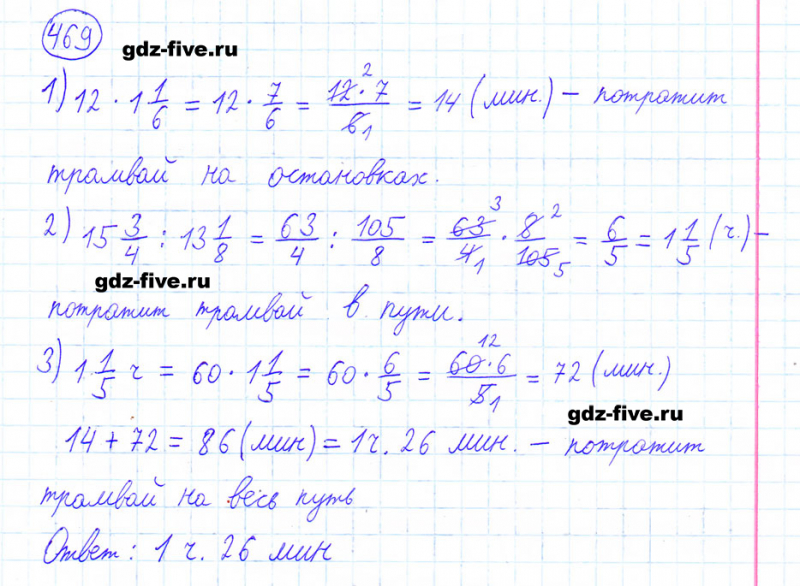 469 gdz-five.ru
1) 12 · 1 1/6 = 12 · 7/6 = 12² · 7 / 6₁ = 14 (мин.) – потратит
трамвай на остановках.
2) 15 3/4 : 13 1/8 = 63/4 : 105/8 = 63³/4₁ · 8²/105₅ = 6/5 = 1 1/5 (ч.) –
gdz-five.ru
потратит трамвай в пути.
3) 1 1/5 ч = 60 · 1 1/5 = 60 · 6/5 = 60¹² · 6 / 5₁ = 72 (мин.)
gdz-five.ru
14 + 72 = 86 (мин) = 1 ч. 26 мин. – потратит
трамвай на весь путь
Ответ: 1 ч. 26 мин